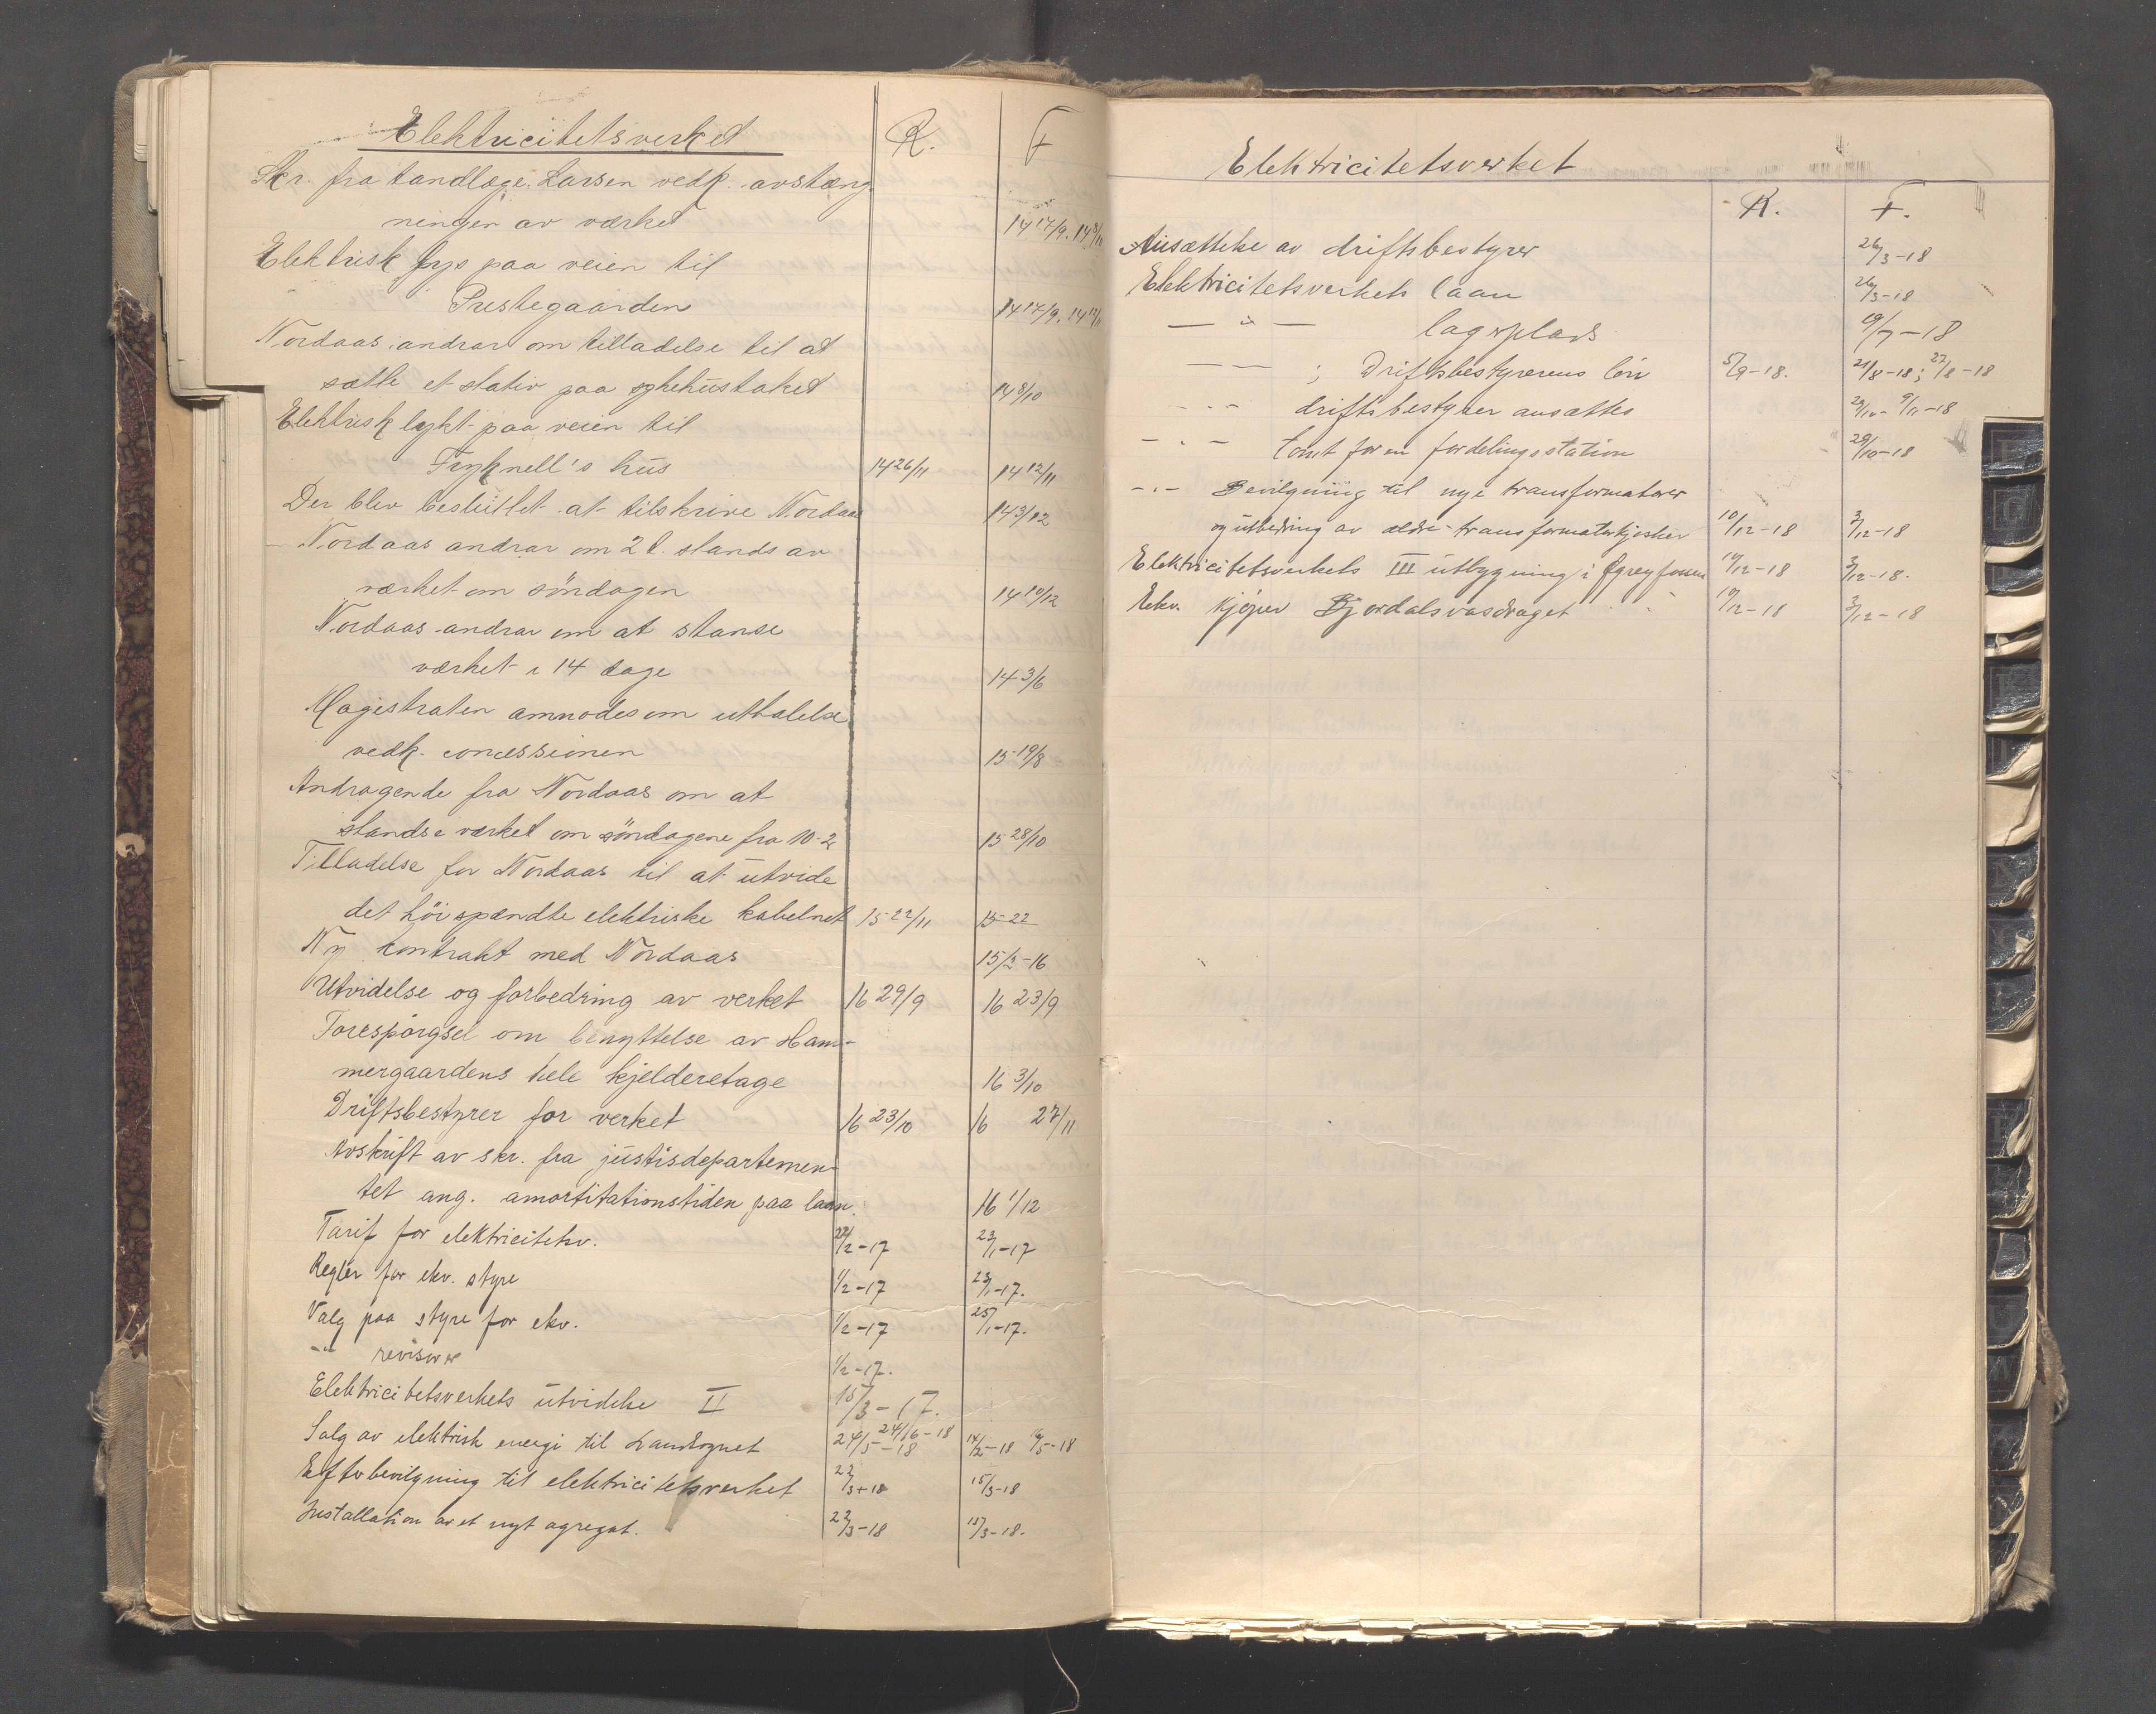 Elektricitetsverket R. F
Skr. fra tandlæge Larsen vedk. avstæng-
ningen av værket 14 17/9. 14 8/10
Elektrisk lys paa veien til
Prestegaarden 14 17/9. 14 12/11
Nordaas andrar om tilladelse til at
sætte et stativ paa sykehustaket 14 8/10
Elektrisk lykt paa veien til
Fryknell's hus 14 26/11 14 12/11
Der blev besluttet at tilskrive Nordaas 14 3/12
Nordaas andrar om 2 t. stands av
værket om söndagen 14 10/12
Nordaas andrar om at stanse
værket i 14 dage 14 3/6
Magistraten anmodes om uttalelse
vedk. concessionen 15 19/8
Andragende fra Nordaas om at
standse værket om söndagene fra 10-2 15 28/10
Tilladelse for Nordaas til at utvide
det höispændte elektriske kabelnet 15 22/11 15 22
Ny kontrakt med Nordaas 15/2-16
Utvidelse og forbedring av verket 16 29/9 16 23/9
Forespörgsel om benyttelse av Ham-
mergaardens hele kjelderetage 16 3/10
Driftsbestyrer for verket 16 23/10 16 27/11
Avskrift av skr. fra justisdepartemen-
tet ang. amortitationstiden paa laan. 16 1/12
Tarif for elektricitetsv. 2-17 23/1-17
Regler for ekv. styre 1/2-17 23/1-17.
Valg paa styre for ekv. 1/2-17 25/1-17.
-"- revisorer 1/2-17.
Elektricitetsverkets utvidelse II 15/3-17.
Salg av elektrisk energi til Landsognet 24/5-18 24/16-18 14/2-18 5-18
Efterbevilgning til elektricitetsverket 22/3-18 15/3-18
Installation av et nyt agregat. 22/3-18 15/3-18.
Elektricitetsverket
R. F.
Ansættelse av driftsbestyrer 26/3-18
Elektricitetsverkets laan 26/3-18
— " — lagerplads 19/7-18
— — ; Driftsbestyrerens lön 5/9-18. 21/8-18; 27/8-18
- " - driftsbestyrer ansættes 29/10- 9/11-18
- " - tomt for en fordelingsstation 29/10-18
-"- Bevilgning til nye transformatorer
og utbedring av ældre transformatorkjosker 10/12-18 3/12-18
Elektricitetsverkets III utbygning i Øgreyfossen 10/12-18 3/12-18.
Ekv. kjöper Gjordalsvasdraget 10/12-18 3/12-18